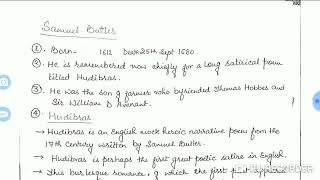 Samuel Butler
① Born- 1612 Death 25th Sept 1680.
② He is remembered now chiefly for a long satirical poem
titled Hudibras.
③ He was the son of farmer who byriended Thomas Hobbes and
Sir William D Avenant.
④ Hudibras
→ Hudibras is an English mock heroic narrative poem from the
17th Century written by Samuel Butler.
→ Hudibras is perhaps the first great poetic satire in English.
→ This burlesque romance, of which the first part appeared